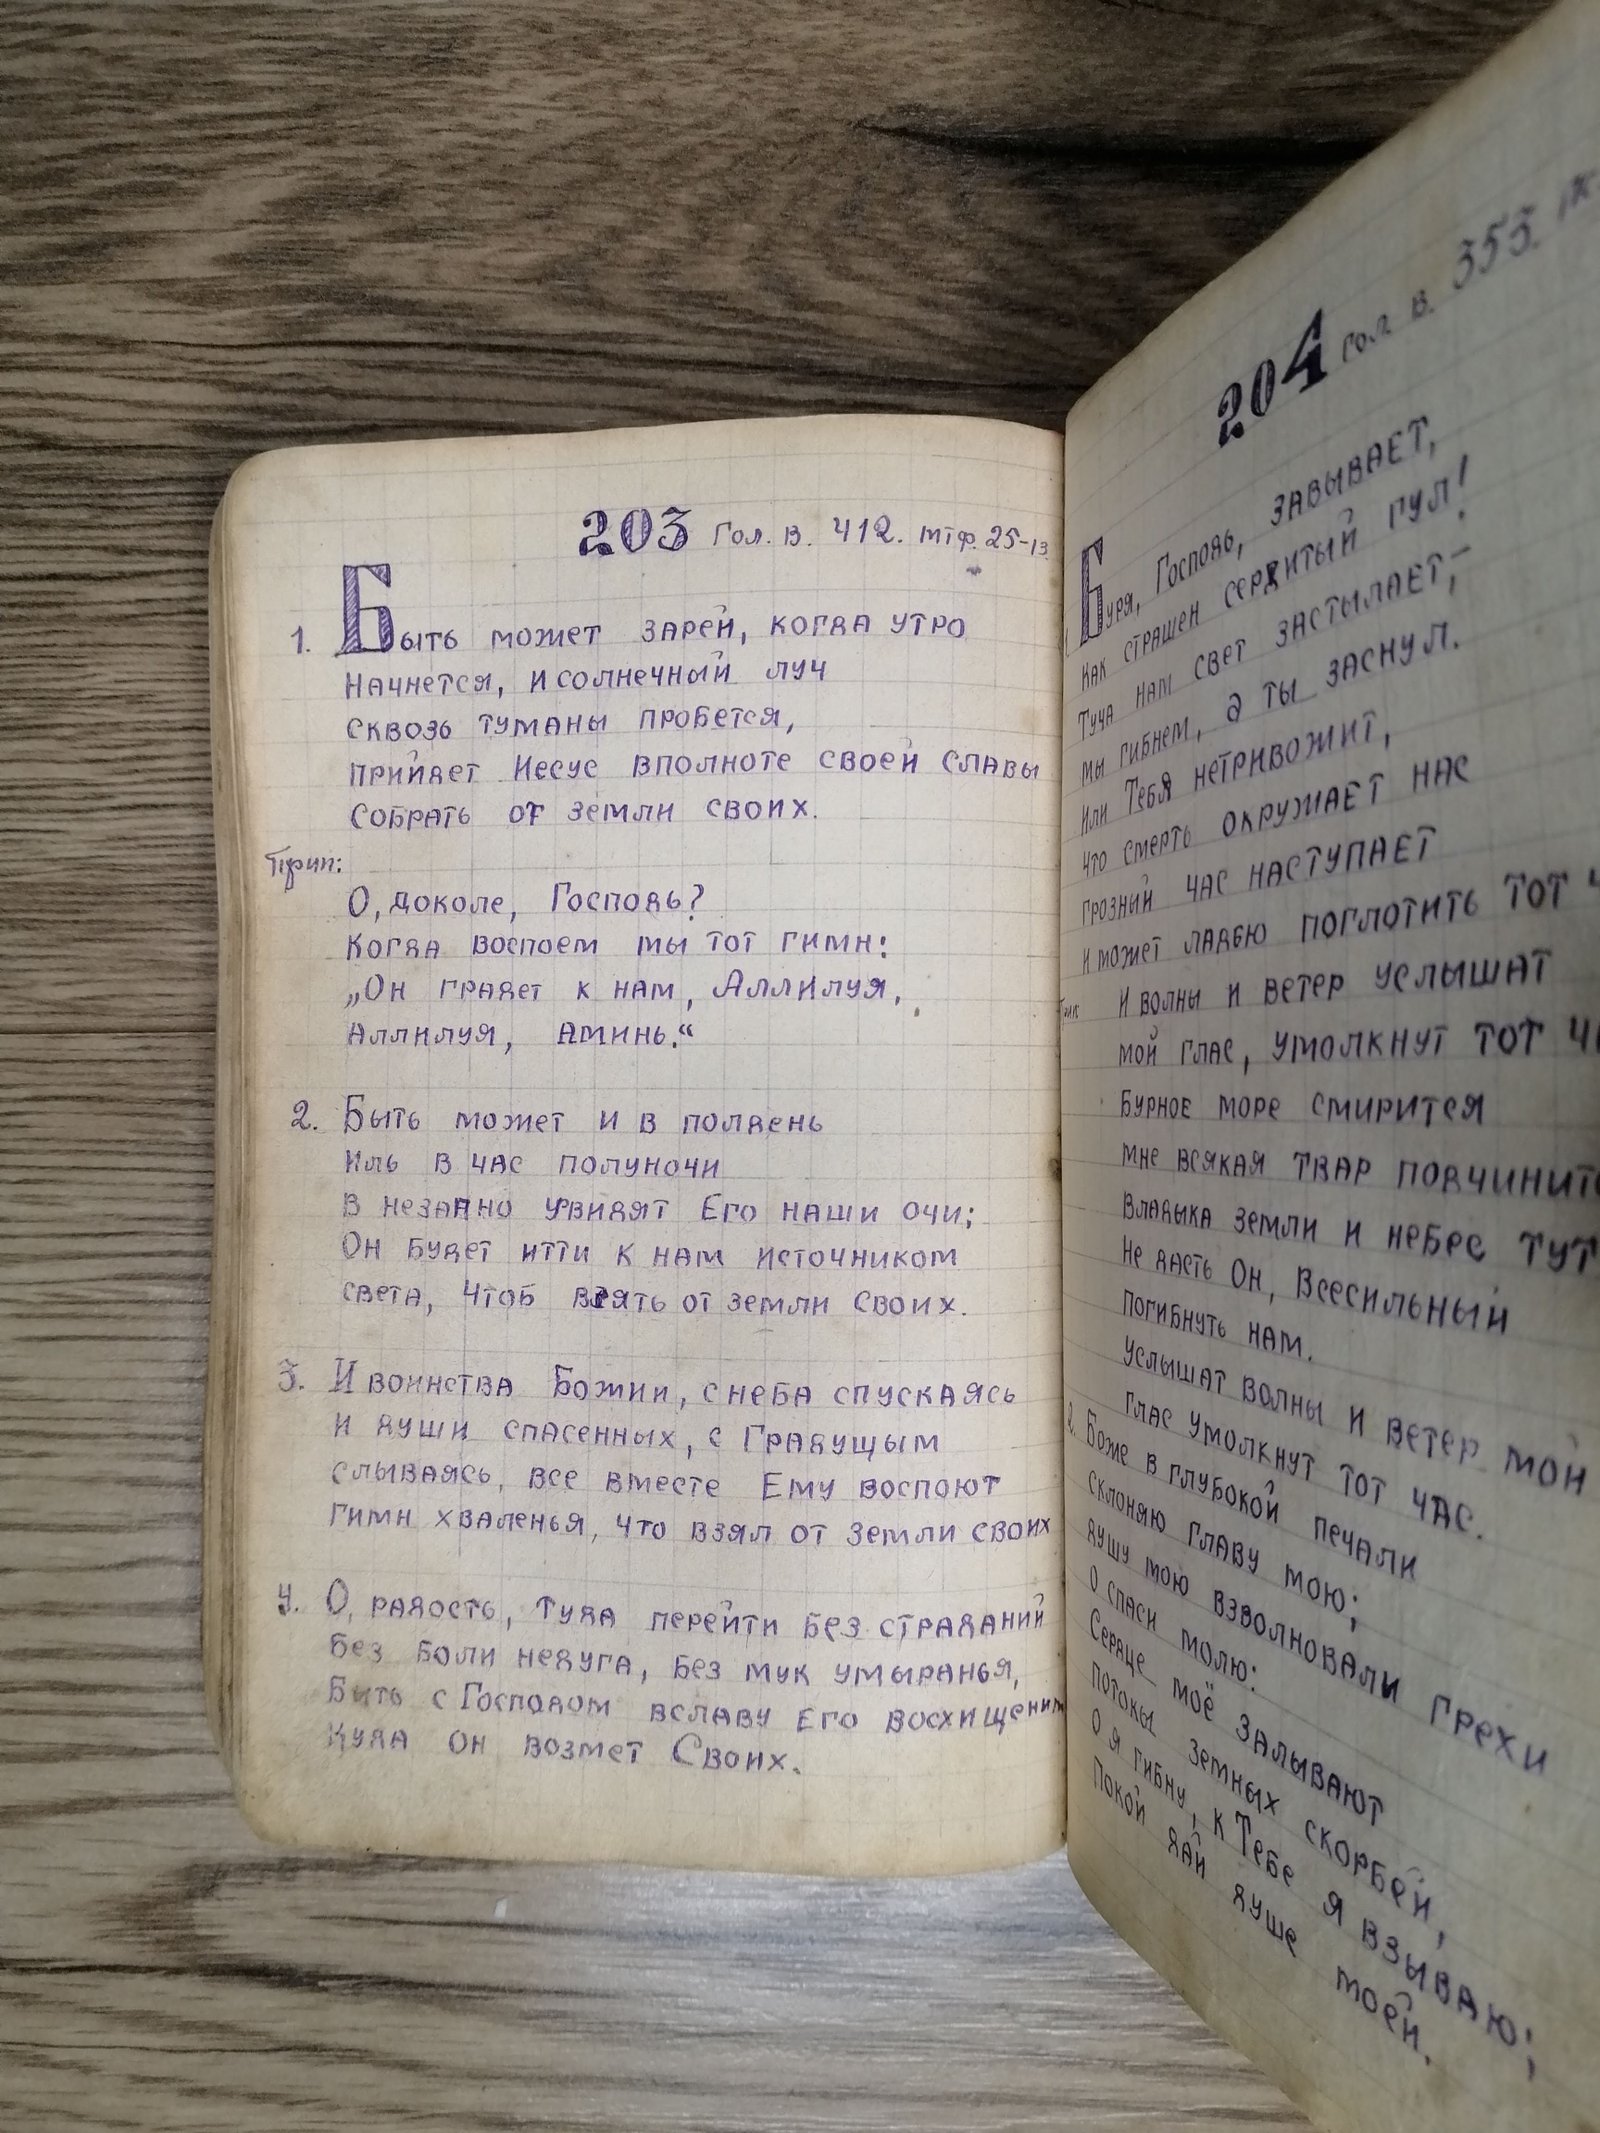 203 Гол. в. 412. мтф. 25-13
1. Быть может зарей, когда утро
начнется, и солнечный луч
сквозь туманы пробется,
прийдет Иесус вполноте своей славы
собрать от земли своих.
Прип:
О, доколе, Господь?
Когда воспоем мы тот гимн:
„Он градет к нам, Аллилуя,
Аллилуя, Аминь.“
2. Быть может и в полдень
иль в час полуночи
в незапно увидят Его наши очи;
Он будет итти к нам источником
света, чтоб взять от земли своих.
3. И воинства Божии, с неба спускаясь
и души спасенных, с Градущым
слываясь, все вместе Ему воспоют
гимн хваленья, что взял от земли своих
4. О, радость, туда перейти без страданий
без боли недуга, без мук умыранья,
Быть с Господом вславу Его восхищеним
Куда он возмет Своих.
204 Гол. в. 353.
1. Буря, Господь, завывает,
как страшен сердитый гул!
Туча нам свет застылает,–
мы гибнем, а ты заснул.
Или Тебя нетривожит,
что смерть окружает нас
грозный час наступает
и может ладью поглотить тот
И волны и ветер услышат
мой глас, умолкнут тот
Бурное море смирится
мне всякая твар подчинитс
Владыка земли и небес тут
Не дасть Он, Всесильный
погибнуть нам.
услышат волны и ветер мой
глас умолкнут тот час.
2. Боже в глубокой печали
склоняю главу мою;
душу мою взволновали грехи
О спаси молю:
Сердце моё залывают
потокы земных скорбей,
О я гибну, к Тебе я взываю;
Покой дай душе моей.